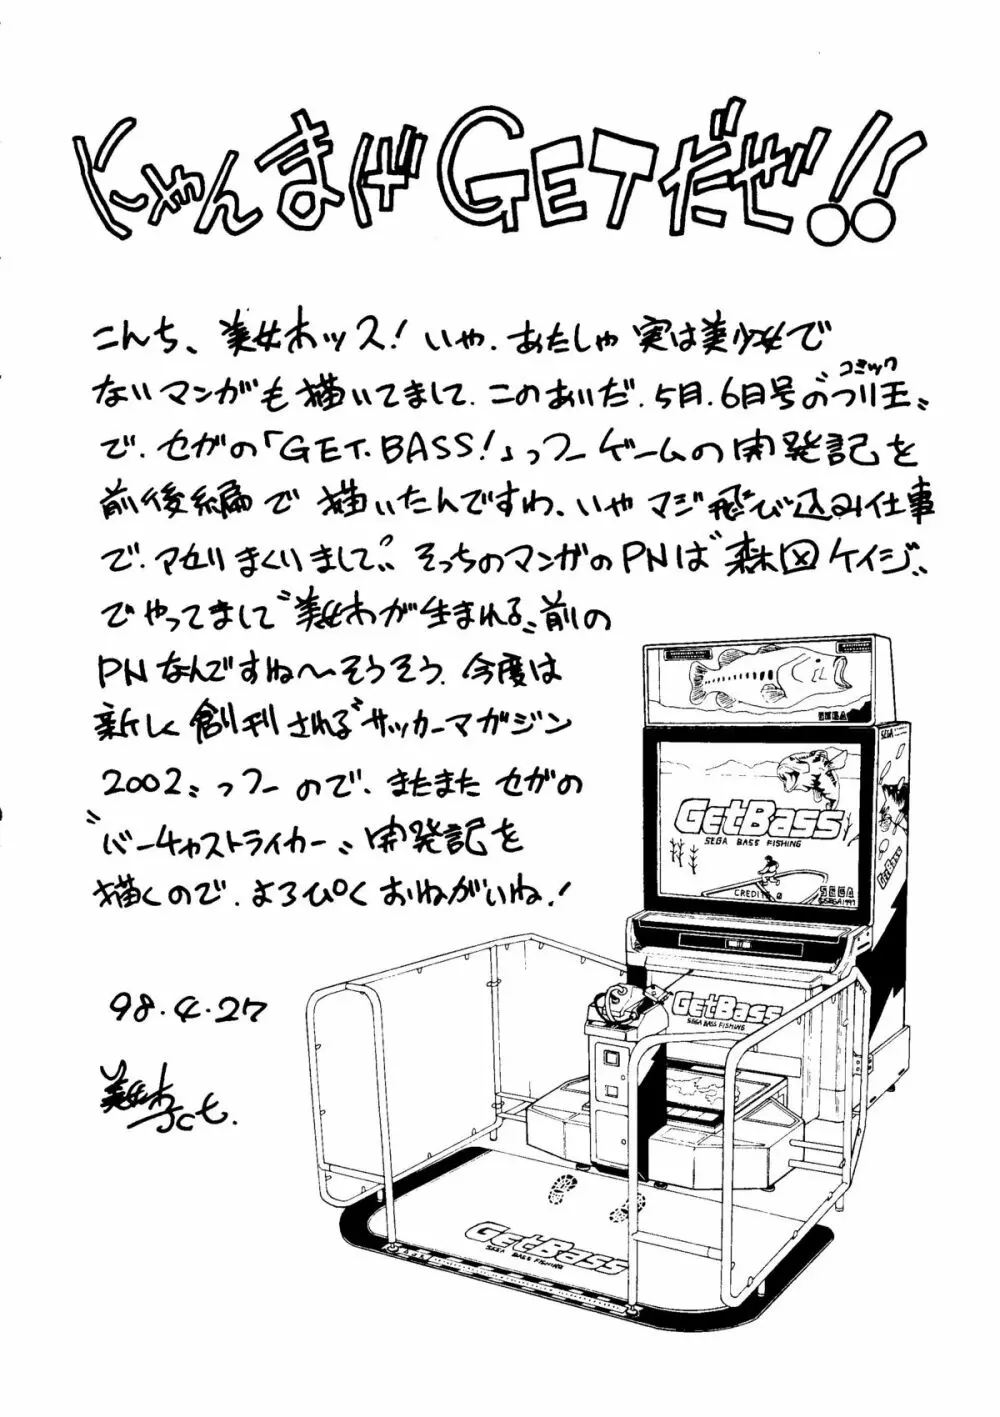 にゃんまげGETだぜ!!
こんち、美女木ッス! いや、あたしゃ 実は美少女で
ないマンガも描いてまして、このあいだ、5月、6月号の〝コミックつり王〟
で、セガの「GET BASS!」っつー ゲームの開発記を
前後編で 描いたんですわ、いや マジ飛び込み仕事
で、アセリまくりまして。そっちのマンガのPNは〝森木図ケイジ〟
でやってまして〝美女木が生まれる〟前の
PNなんですね〜そうそう、今度は
新しく創刊される〝サッカーマガジン
2002〟っつーので、またまた セガの
〝バーチャストライカー〟開発記を
描くので、よろぴく おねがいね!
98.4.27
美女木Jct.
SEGA
SEGA
GetBass
SEGA BASS FISHING
CREDITS 0
SEGA
©SEGA 1997
GetBass
GetBass
SEGA BASS FISHING
GetBass
SEGA BASS FISHING